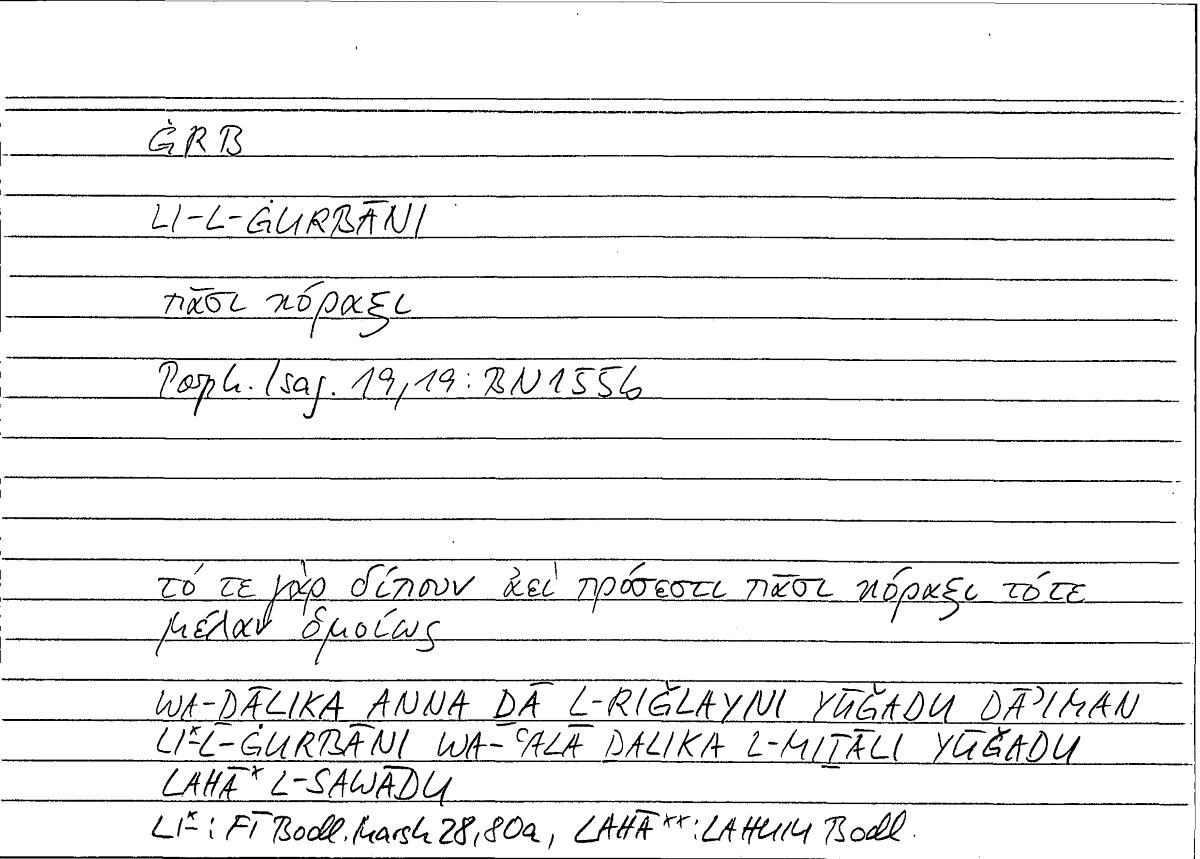 ĠRB
LI-L-ĠURBĀNI
πᾶσι κόραξι
Porph. Isag. 19,19: BN 1556
τό τε γὰρ δίπουν ἀεὶ πρόσεστι πᾶσι κόραξι τό τε
μέλαν ὁμοίως
WA-ḎĀLIKA ANNA ḎĀ L-RIǦLAYNI YŪǦADU DĀʾIMAN
LI*-L-ĠURBĀNI WA-ʿALĀ DALIKA L-MIṮĀLI YŪǦADU
LAHĀ* L-SAWĀDU
LI*-: FĪ Bodl. Marsh 28,80a, LAHĀ**: LAHUM Bodl.